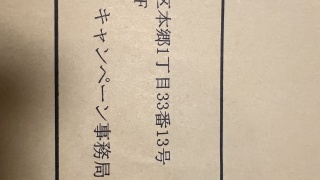 区本郷1丁目33番13号
F
キャンペーン事務局